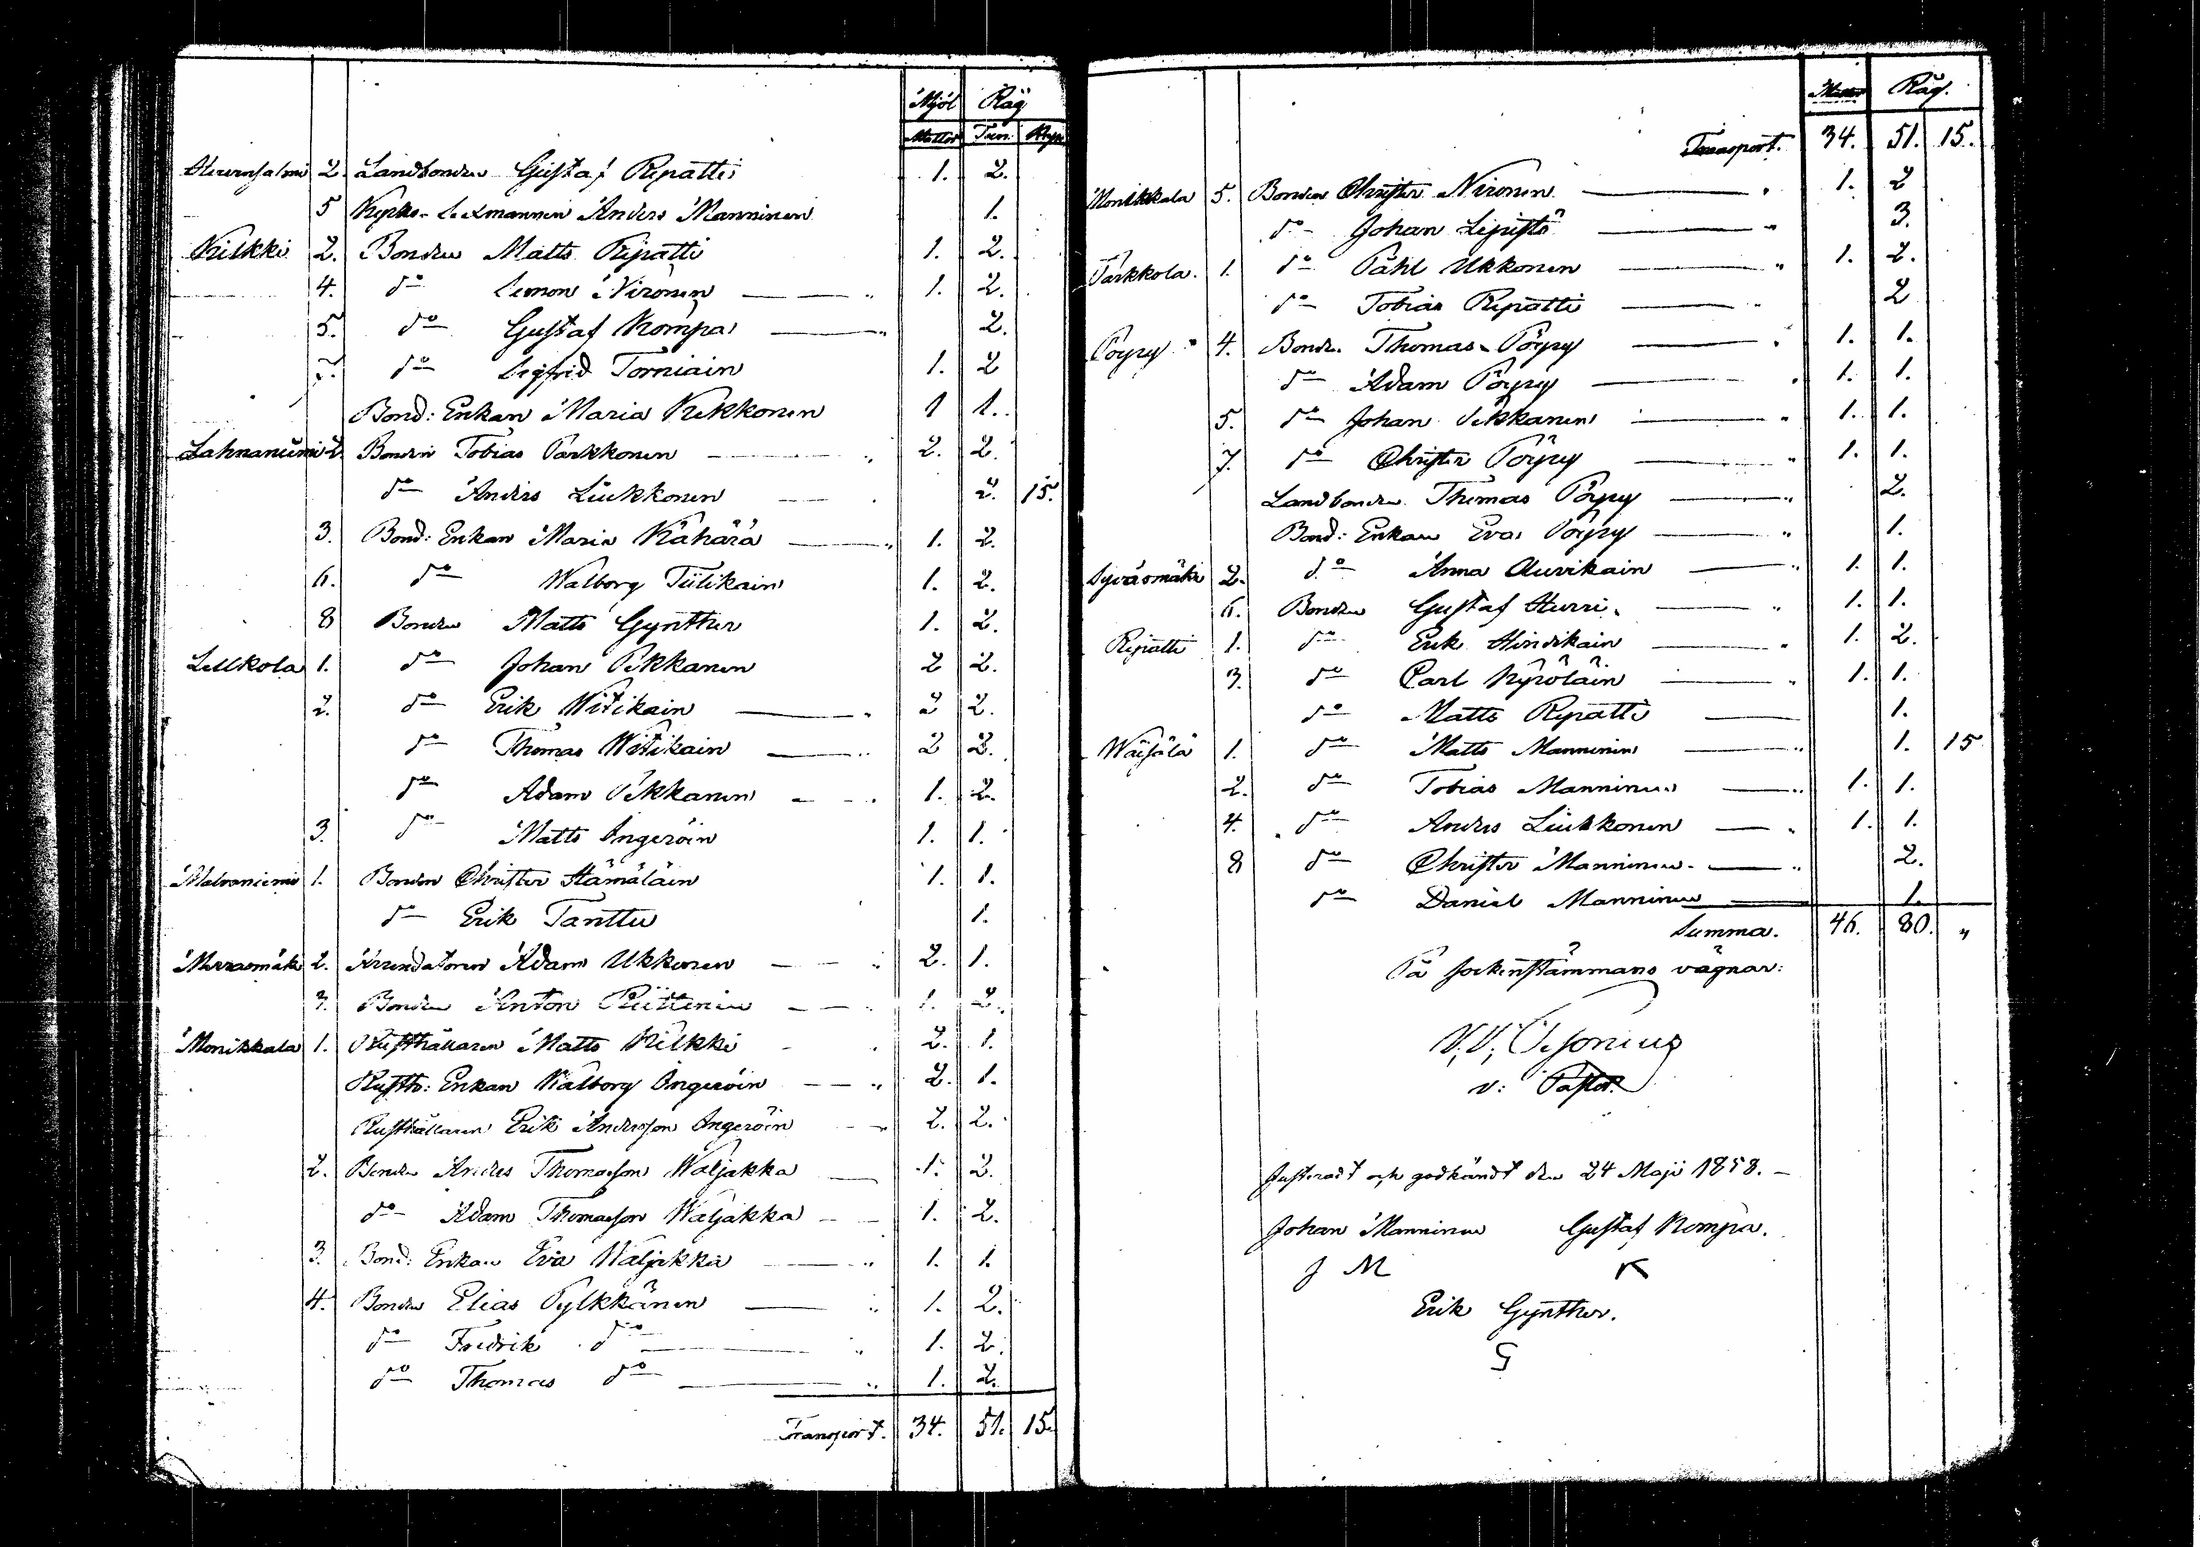 Mjöl Råg
Mattor Tun. Kapp.
Hurrinsalmi 2. Landbonden Gustaf Repatti 1. 2.
5 Kyrko-Sexmannen Anders Manninen 1.
Kilkki 2. Bonden Matts Repatti 1. 2.
4. do Simon Nironen — " 1. 2.
5. do Gustaf Kompa — " 2.
7. do Sigfrid Torniain 1. 2
Bond: Enkan Maria Kekkonen 1 1.
Lahnaniemi 2. Bonden Tobias Parkkonen — " 2. 2.
do Anders Liukkonen — 2. 15.
3. Bond: Enkan Maria Kähärä — " 1. 2.
6. do Walborg Tiilikain 1. 2.
8 Bonden Matts Gynther 1. 2.
Lellkola 1. do Johan Pekkanen 2 2.
2. do Erik Witikain — " 2 2.
do Thomas Witikain — " 2 2.
do Adam Pekkanen — " 1. 2.
3. do Matts Ingeröin 1. 1.
Matvaniemi 1. Bonden Christer Hämäläin 1. 1.
do Erik Tanttu 1.
Murrasmäki 2. Arrendatoren Adam Ukkonen — " 2. 1.
3. Bonden Anton Reittinen — " 1. 2.
Monikkala 1. Rusthållaren Matts Kilkki 2. 1.
Rusth: Enkan Walborg Ingeröin — " 2. 1.
Rusthållaren Erik Andersson Ingeröin — " 2. 2.
2. Bonden Anders Thomasson Waljakka — 1. 2.
do Adam Thomasson Waljakka — 1. 2.
3. Bond: Enkan Eva Waljakka — " 1. 1.
4. Bonden Elias Pylkkänen — " 1. 2.
do Fredrik do — " 1. 2.
do Thomas do — " 1. 2.
Transport. 34. 51. 15.
Mattor Råg.
Transport. 34. 51. 15.
Monikkala 5. Bonden Christer Nironen — " 1. 2
do Johan Lepistö — " 3.
Parkkola. 1. do Påhl Ukkonen — " 1. 2.
do Tobias Repatti — " 2
Pöyry 4. Bonden Thomas Pöyry — " 1. 1.
do Adam Pöyry — " 1. 1.
5. do Johan Pekkanen — " 1. 1.
7. do Christer Pöyry — " 1. 1.
Landbonden Thomas Pöyry — " 2.
Bond: Enkan Eva Pöyry — " 1.
Syväsmäki 2. do Anna Auvikain — " 1. 1.
6. Bonden Gustaf Hurri — " 1. 1.
Repatti 1. do Erik Hindikain — " 1. 2.
3. do Carl Kyröläin — " 1. 1.
do Matts Repatti — 1.
Wäisälä 1. do Matts Manninen — " 1. 15
2. do Tobias Manninen — " 1. 1.
4. do Anders Liukkonen — " 1. 1.
8 do Christer Manninen — " 2.
do Daniel Manninen — 1.
Summa. 46. 80. "
På sockenstämmans vägnar:
v: Pastor.
Justeradt och godkändt den 24 Maji 1858. —
Johan Manninen Gustaf Kompa.
J M K
Erik Gynther.
G